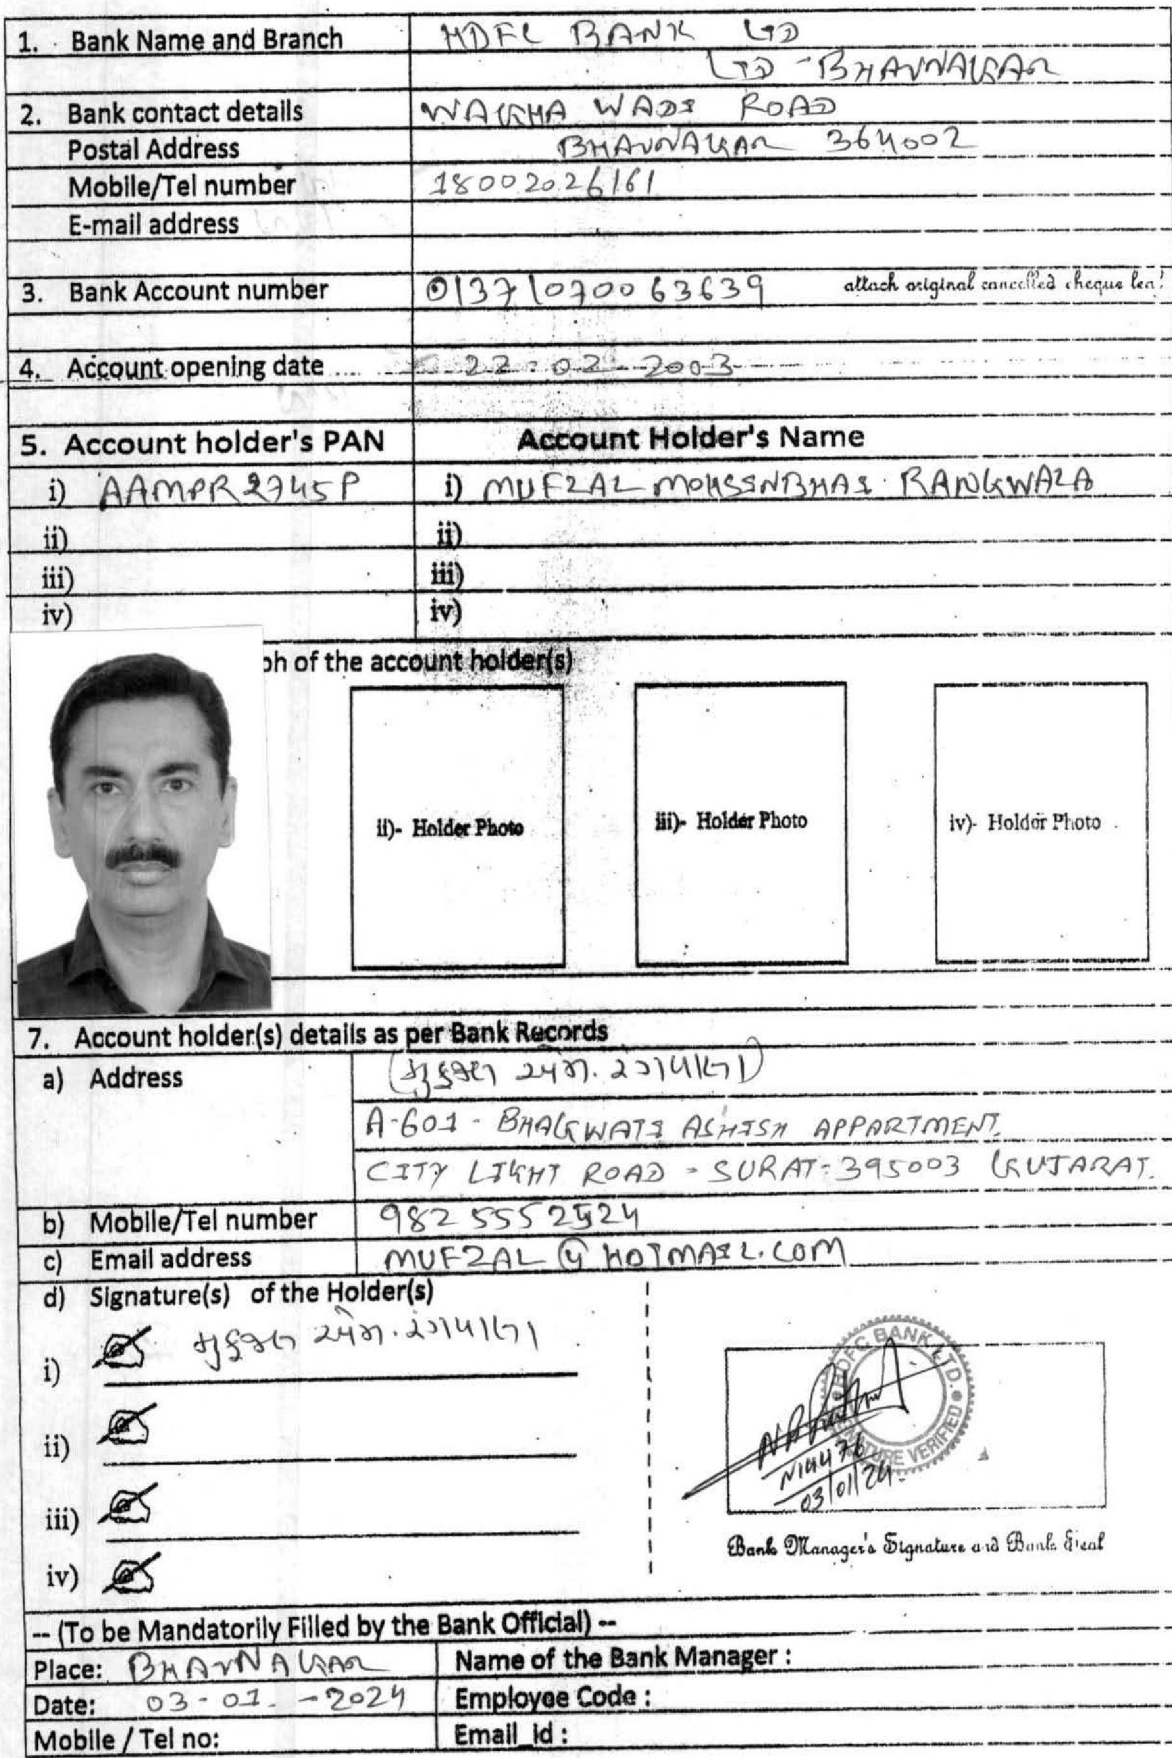 1. Bank Name and Branch HDFC BANK LTD
LTD - BHAVNAGAR
2. Bank contact details WAGHA WADI ROAD
Postal Address BHAVNAGAR 364002
Mobile/Tel number 18002026161
E-mail address
3. Bank Account number 01371070063639 attach original cancelled cheque leaf
4. Account opening date 22-02-2003
5. Account holder's PAN Account Holder's Name
i) AAMPR2745P i) MUFZAL MOHSINBHAI RANGWALA
ii) ii)
iii) iii)
iv) iv)
ph of the account holder(s)
ii)- Holder Photo iii)- Holder Photo iv)- Holder Photo
7. Account holder(s) details as per Bank Records
a) Address (મુફઝલ એમ. રંગવાલા)
A-601 - BHAGWATI ASHISH APPARTMENT
CITY LIGHT ROAD - SURAT-395003 GUJARAT.
b) Mobile/Tel number 982 5552524
c) Email address MUFZAL@HOTMAIL.COM
d) Signature(s) of the Holder(s)
i) મુફઝલ એમ. રંગવાલા
ii)
iii)
iv)
HDFC BANK LTD.
SIGNATURE VERIFIED
N14476
03/01/24
Bank Manager's Signature and Bank Seal
-- (To be Mandatorily Filled by the Bank Official) --
Place: BHAVNAGAR Name of the Bank Manager :
Date: 03-01-2024 Employee Code :
Mobile / Tel no: Email_Id :